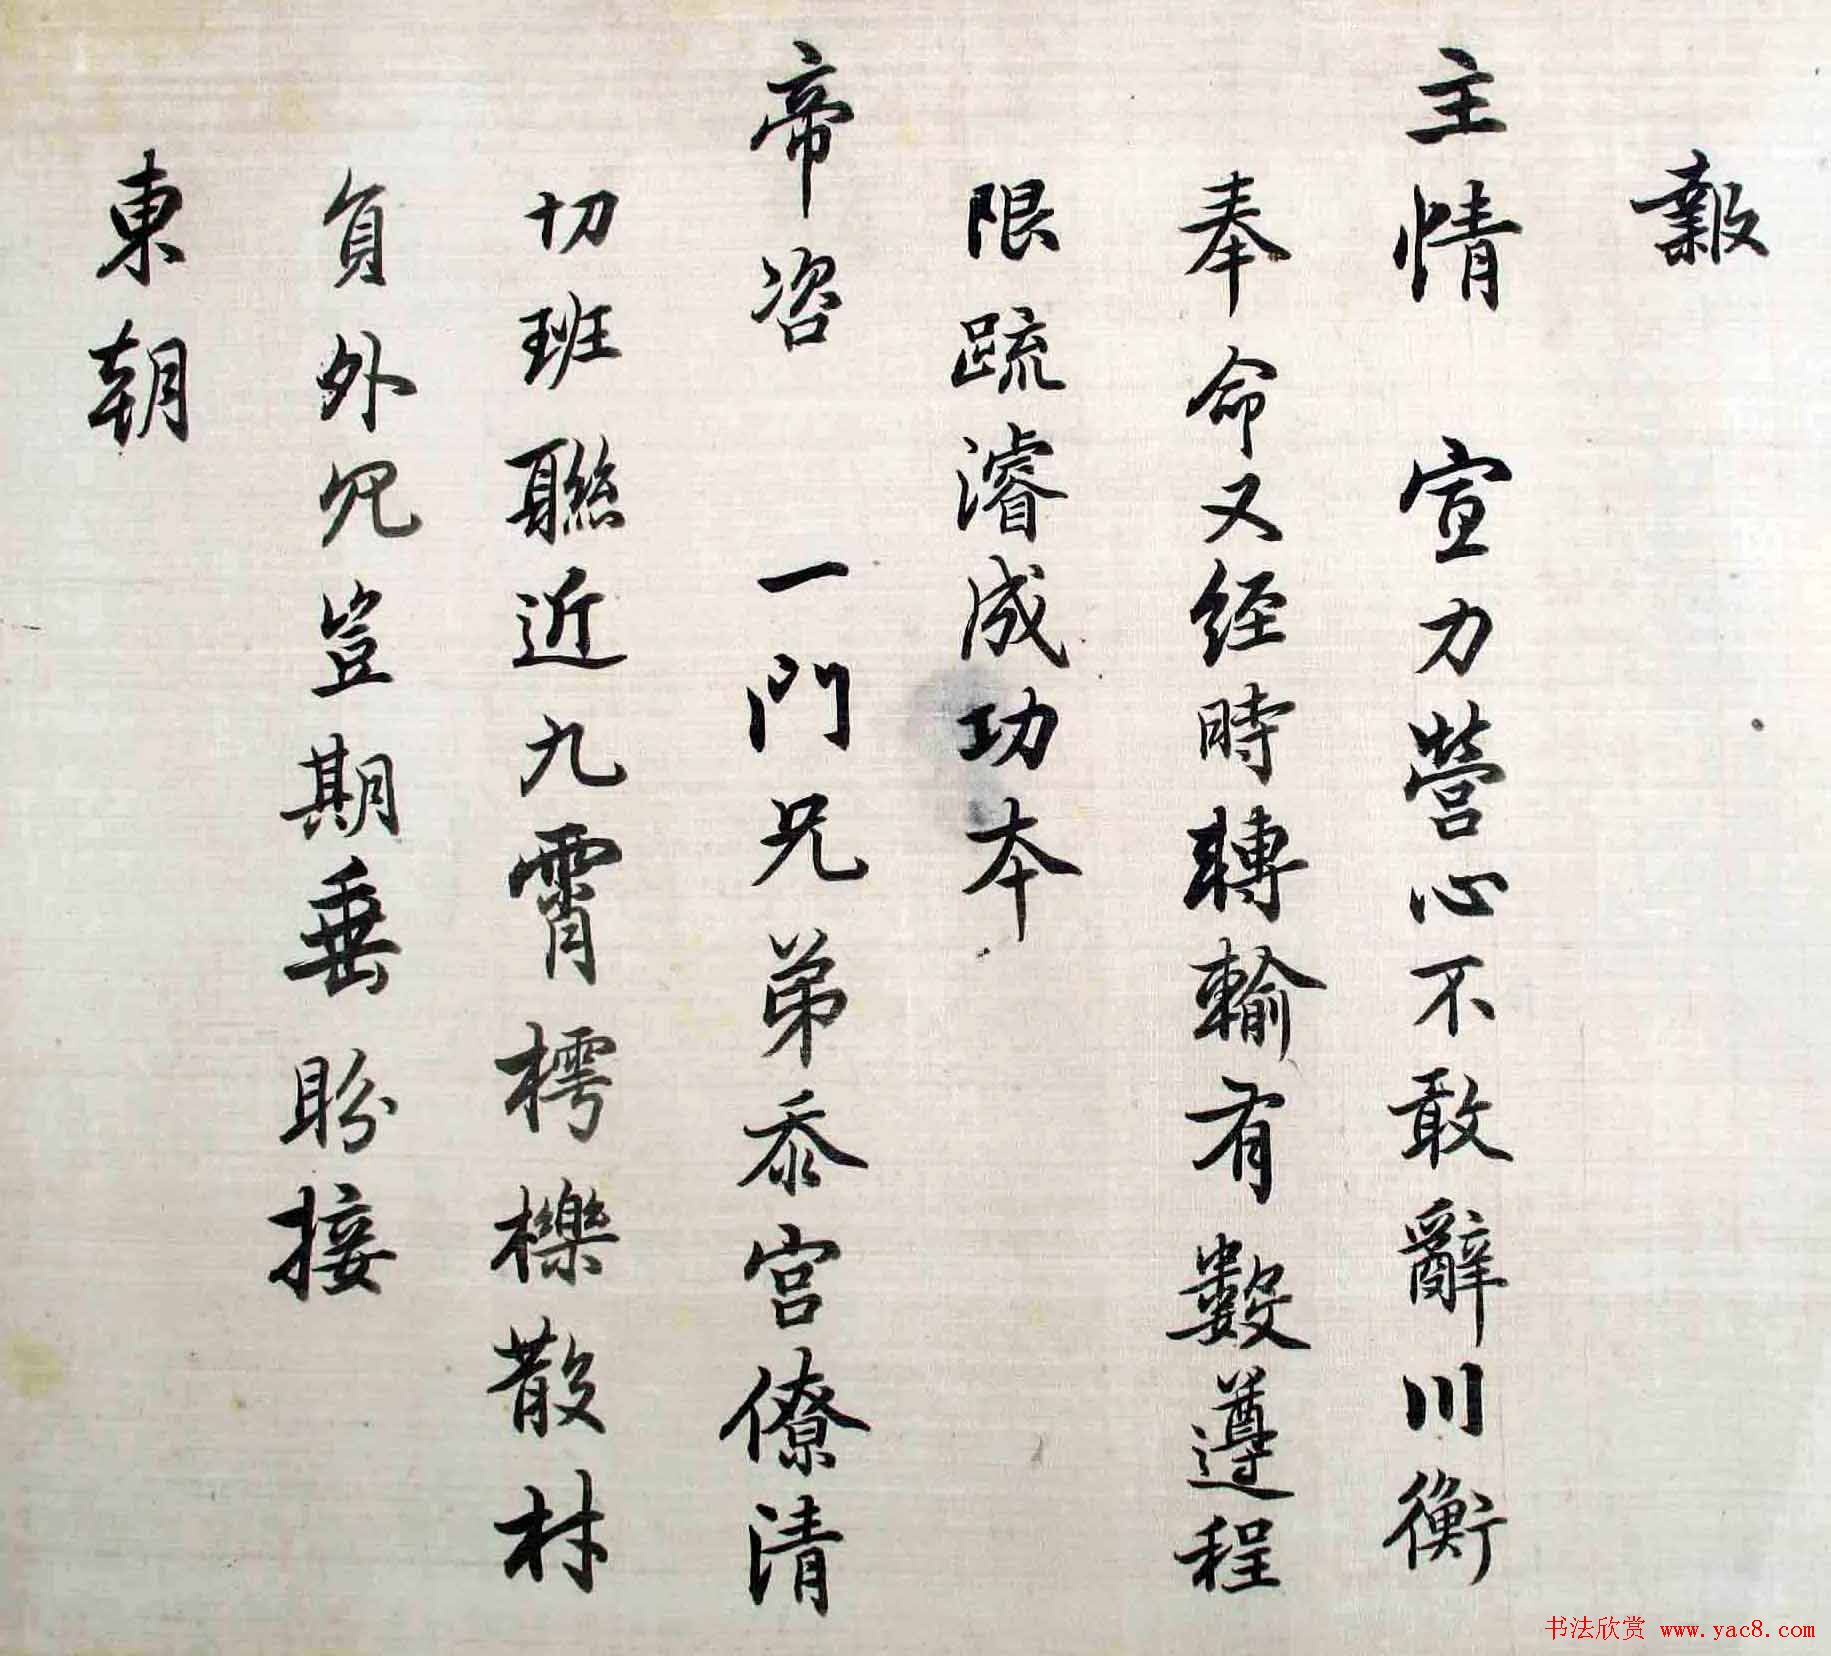 報
主情 宣力營心不敢辭川衡
奉命又经時轉輸有數遵程
限疏濬成功本
帝咨 一門兄弟忝宫僚清
切班聯近九霄樗櫟散材
負外况豈期垂盼接
東朝
书法欣赏 www.yac8.com